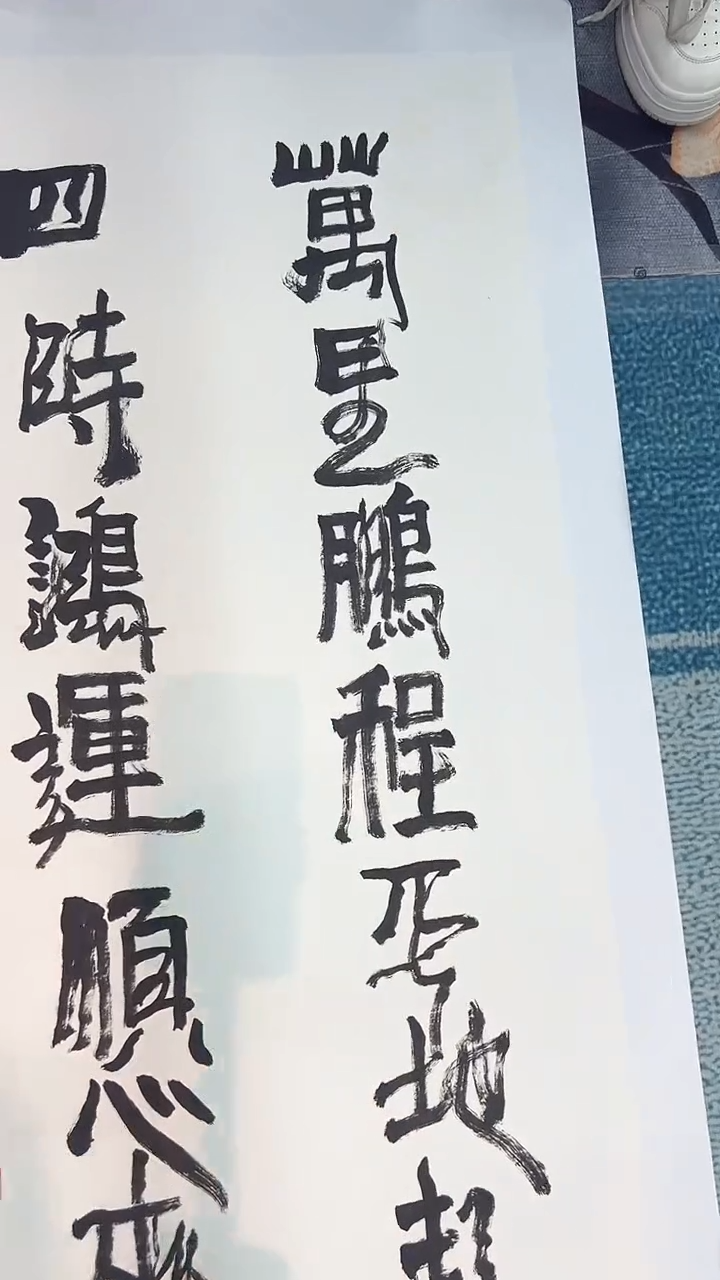 萬里鵬程平地起
四時鴻運順心來